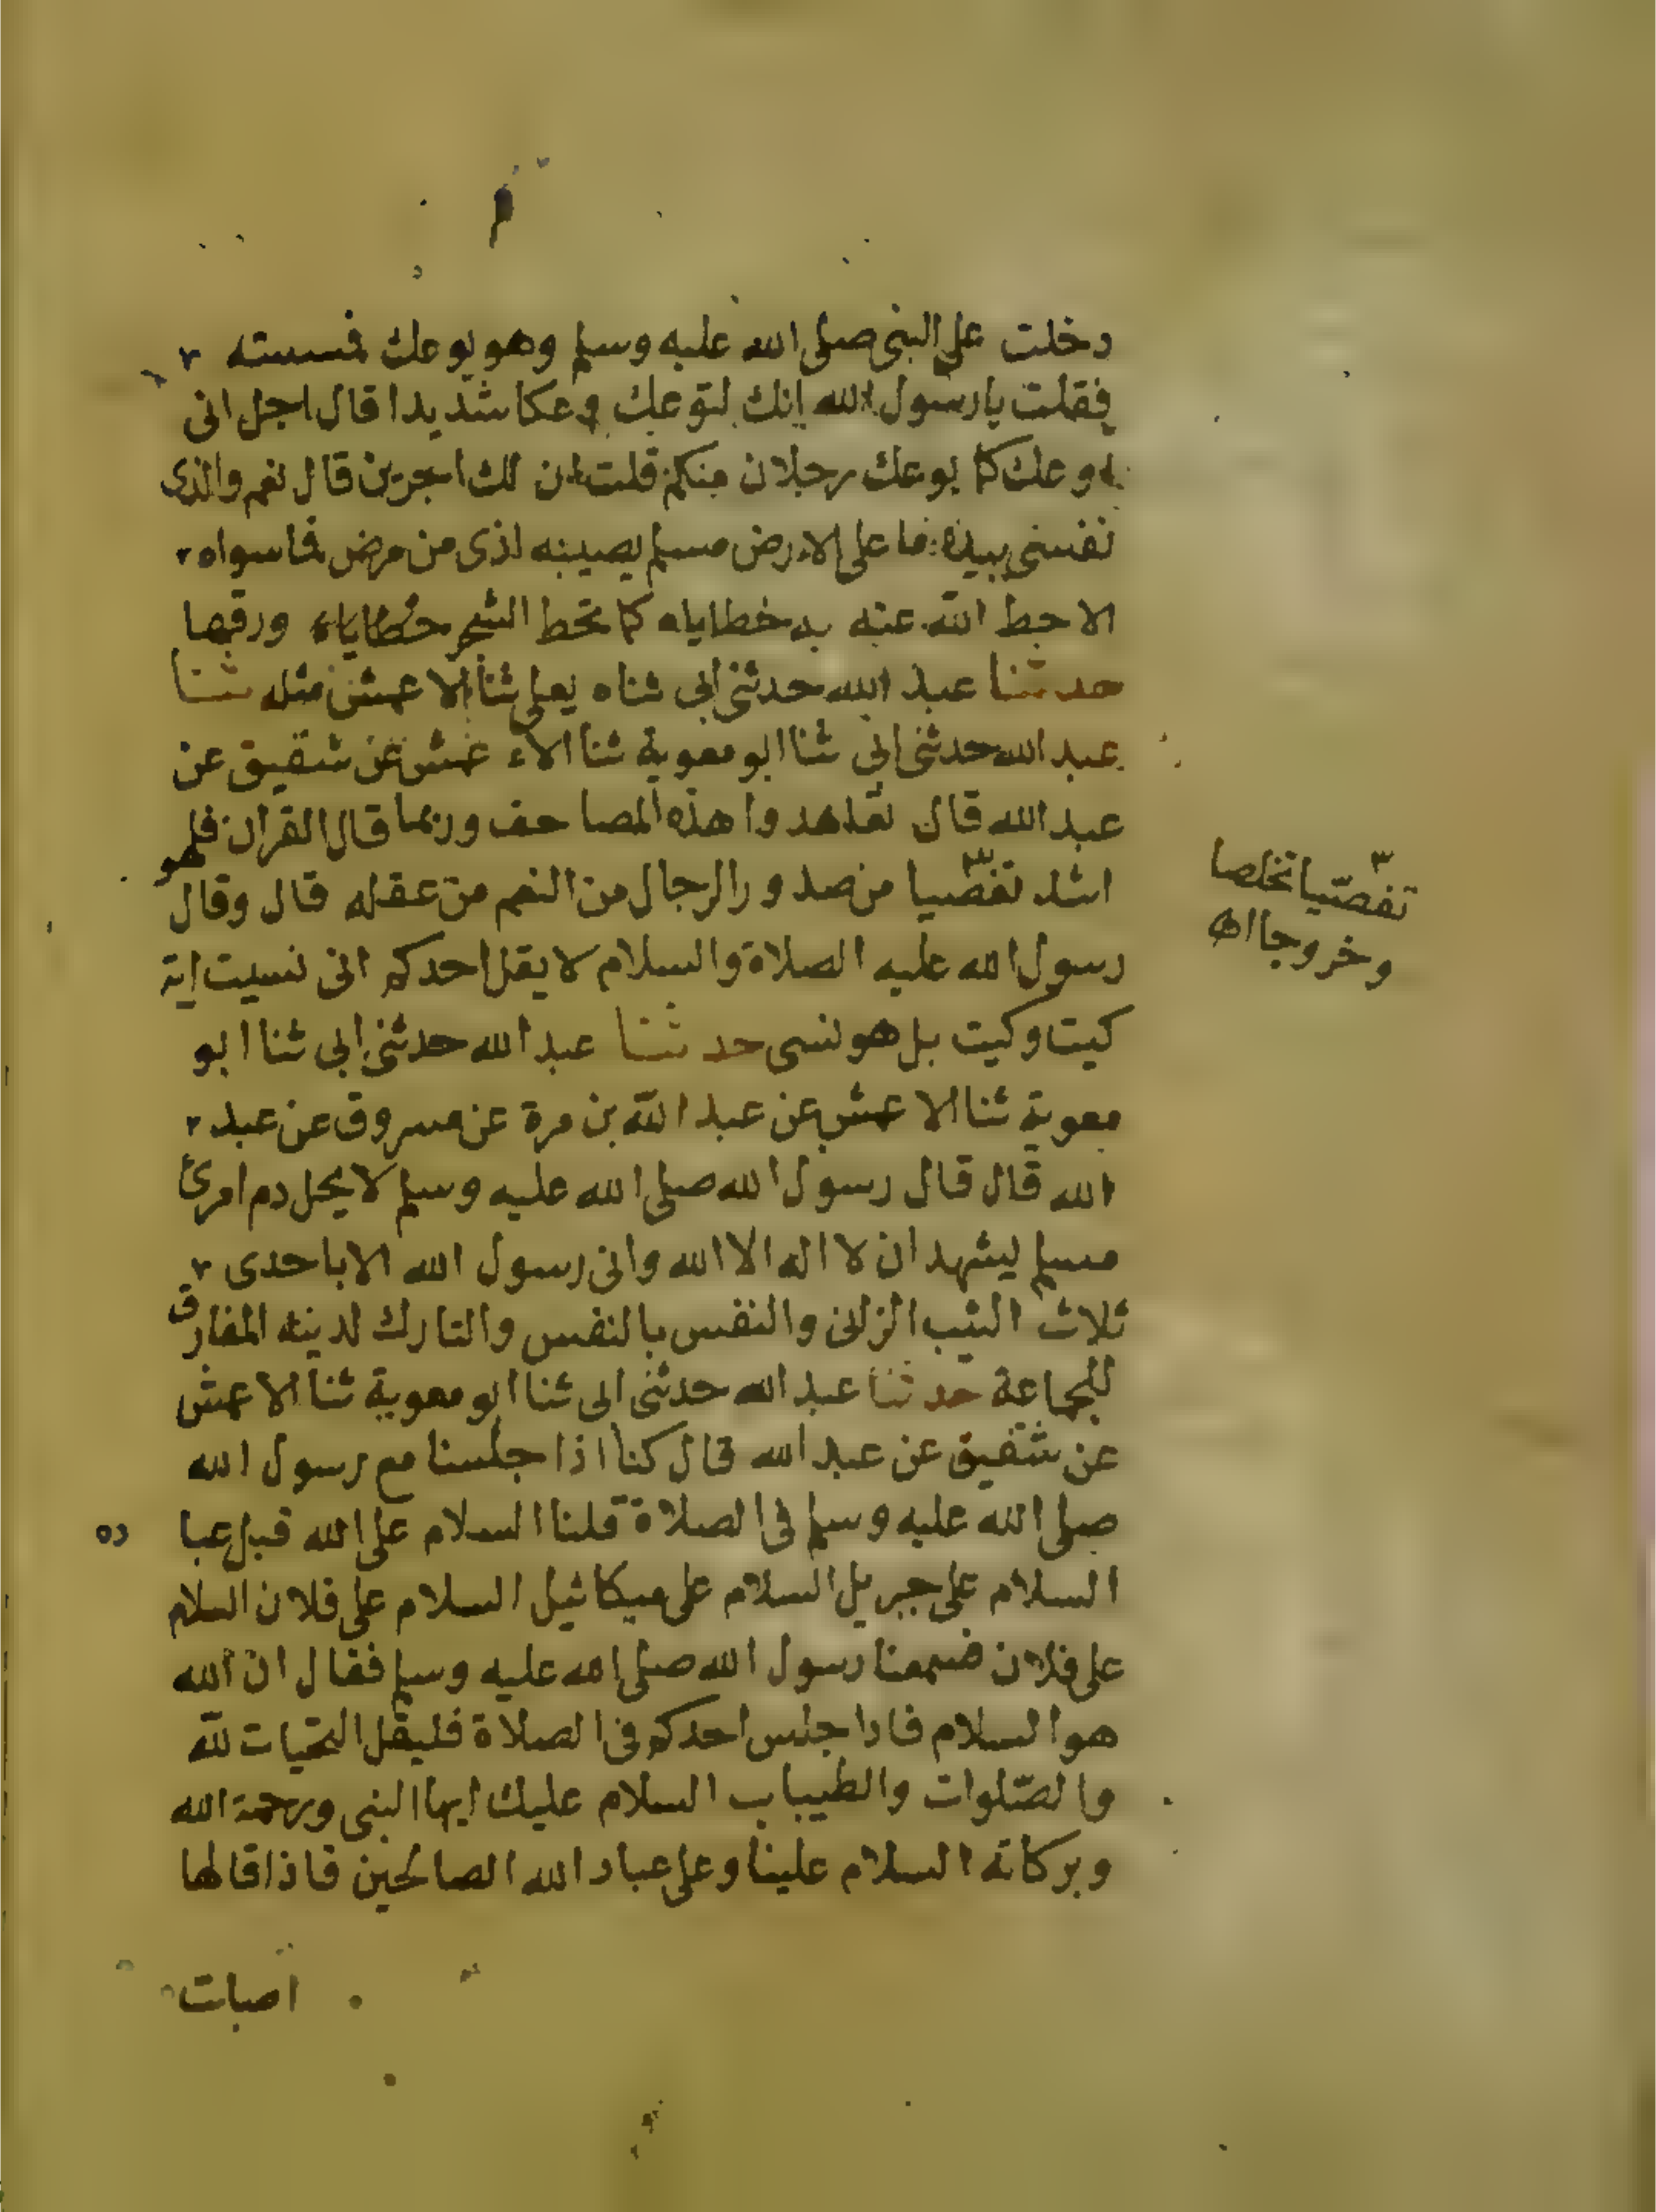 دخلت على النبى صلى الله عليه وسلم وهو يوعك فمسسته
فقلت يا رسول الله انك لتوعك وعكا شديدا قال اجل انى
اوعك كما يوعك رجلان منكم قلت ان لك اجرين قال نعم والذى
نفسى بيده ما على الارض مسلم يصيبه اذى من مرض فما سواه
الا حط الله عنه به خطاياه كما تحط الشجر خطاياه ورقها
حدثنا عبد الله حدثنى ابى ثناه يعلى ثنا الاعمش مثله ثنا
عبد الله حدثنى ابى ثنا ابو معوية ثنا الاعمش عن شقيق عن
عبد الله قال تعاهدوا هذه المصاحف وربما قال القران فلهو
اشد تفصّيا من صدور الرجال من النعم من عقله قال وقال
تفصّيا تخلصا
وخروجا اھ
رسول الله عليه الصلاة والسلام لا يقل احدكم انى نسيت اية
كيت وكيت بل هو نسى حدثنا عبد الله حدثنى ابى ثنا ابو
معوية ثنا الاعمش عن عبد الله بن مرة عن مسروق عن عبد
الله قال قال رسول الله صلى الله عليه وسلم لا يحل دم امرئ
مسلم يشهد ان لا اله الا الله وانى رسول الله الا باحدى
ثلاث الثيب الزانى والنفس بالنفس والتارك لدينه المفارق
للجماعة حدثنا عبد الله حدثنى ابى ثنا ابو معوية ثنا الاعمش
عن شقيق عن عبد الله قال كنا اذا جلسنا مع رسول الله
صلى الله عليه وسلم فى الصلاة قلنا السلام على الله قبل عبا ده
السلام على جبريل السلام على ميكائيل السلام على فلان السلام
على فلان فسمعنا رسول الله صلى الله عليه وسلم فقال ان الله
هو السلام فاذا جلس احدكم فى الصلاة فليقل التحيات لله
والصّلوات والطيبات السلام عليك ايها النبى ورحمة الله
وبركاته السلام علينا وعلى عباد الله الصالحين فاذا قالها
اصابت